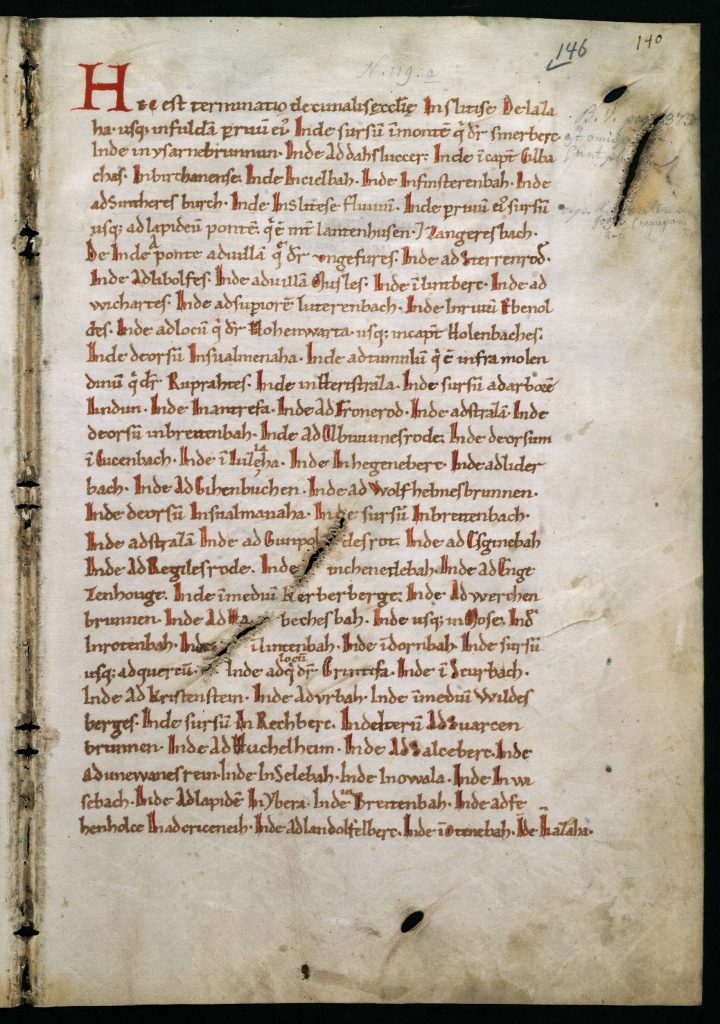 146
140
N. 119. a
Hec est terminatio decimalis ęcclię In slitise De lala
ha. usq; in fuldā p riuū ei⁹. Inde sursū ī monte q̄ dr̄ smerberc
Inde in ysarnebrunnun. Inde Ad dahsluccer. Inde ī capt̄ Elba
chas. In birchanense. Inde In cielbah. Inde In finsterenbah. Inde
ad Suntheres burch. Inde In slitese fluuiū. Inde p riuū ei⁹ sursū
usq; ad lapideū pontē. q̄ ē īnt̄ lantenhusen. 7 Zangeresbach.
De Inde A ponte ad uillā q̄ dr̄ ungefures. Inde ad herrenrod.
Inde Ad libolfes. Inde ad uillā Ousles. Inde ī lintberc. Inde ad
wichartes. Inde ad supiorē luterenbach. Inde In riuū Ebenol
des. Inde ad locū q̄ dr̄ Hohenwarta. usq; in capt̄ Holenbaches.
Inde deorsū In sualmenaha. Inde ad tumulū q̄ ē infra molen
dinū q̄ dr̄ Ruprahtes. Inde in Heristrala. Inde sursū ad arborē
Lindun. Inde In antrefa. Inde Ad Fronerod. Inde ad stralā. Inde
deorsū in breitenbah. Inde Ad Obwinesrode. Inde deorsum
ī Gucenbach. Inde ī Lulcęha. Inde In hegeneberc. Inde ad lider
bach. Inde Ad Gihenbuchen. Inde ad Wolfhelmesbrunnen.
Inde deorsū In sualmanaha. Inde sursū In breitenbach.
Inde ad stralā Inde ad Gunpol desrot. Inde ad Esginebah
Inde Ad Regilesrode. Inde in chenerlebah. Inde ad Enge
Zenhouge. Inde ī mediū Kerberberge. Inde Ad werchen
brunnen. Inde Ad bechesbah. Inde usq; in Mose. Ind̄
In rotenbah. Inde ī lintenbah. Inde ī dornbah. Inde sursū
usq; ad quercū. Inde ad locū q̄ dr̄ Grintifa. Inde ī Scurbach.
Inde Ad Kristenstein. Inde Ad vrbah. Inde ī mediū Wildes
berges. Inde sursū In Rechberc. Inde Iterū Ad Suarcen
brunnen. Inde Ad Kuchelheim. Inde Ad Salceberc. Inde
Ad unewanes rein. Inde In Selebah. Inde In owala. Inde In wi
sebach. Inde Ad lapidē In ybera. Inde in Breitenbah. Inde ad fe
henholce In ad ericeneih. Inde Ad landolfelberc. Inde ī otenebah. De In lalaha.